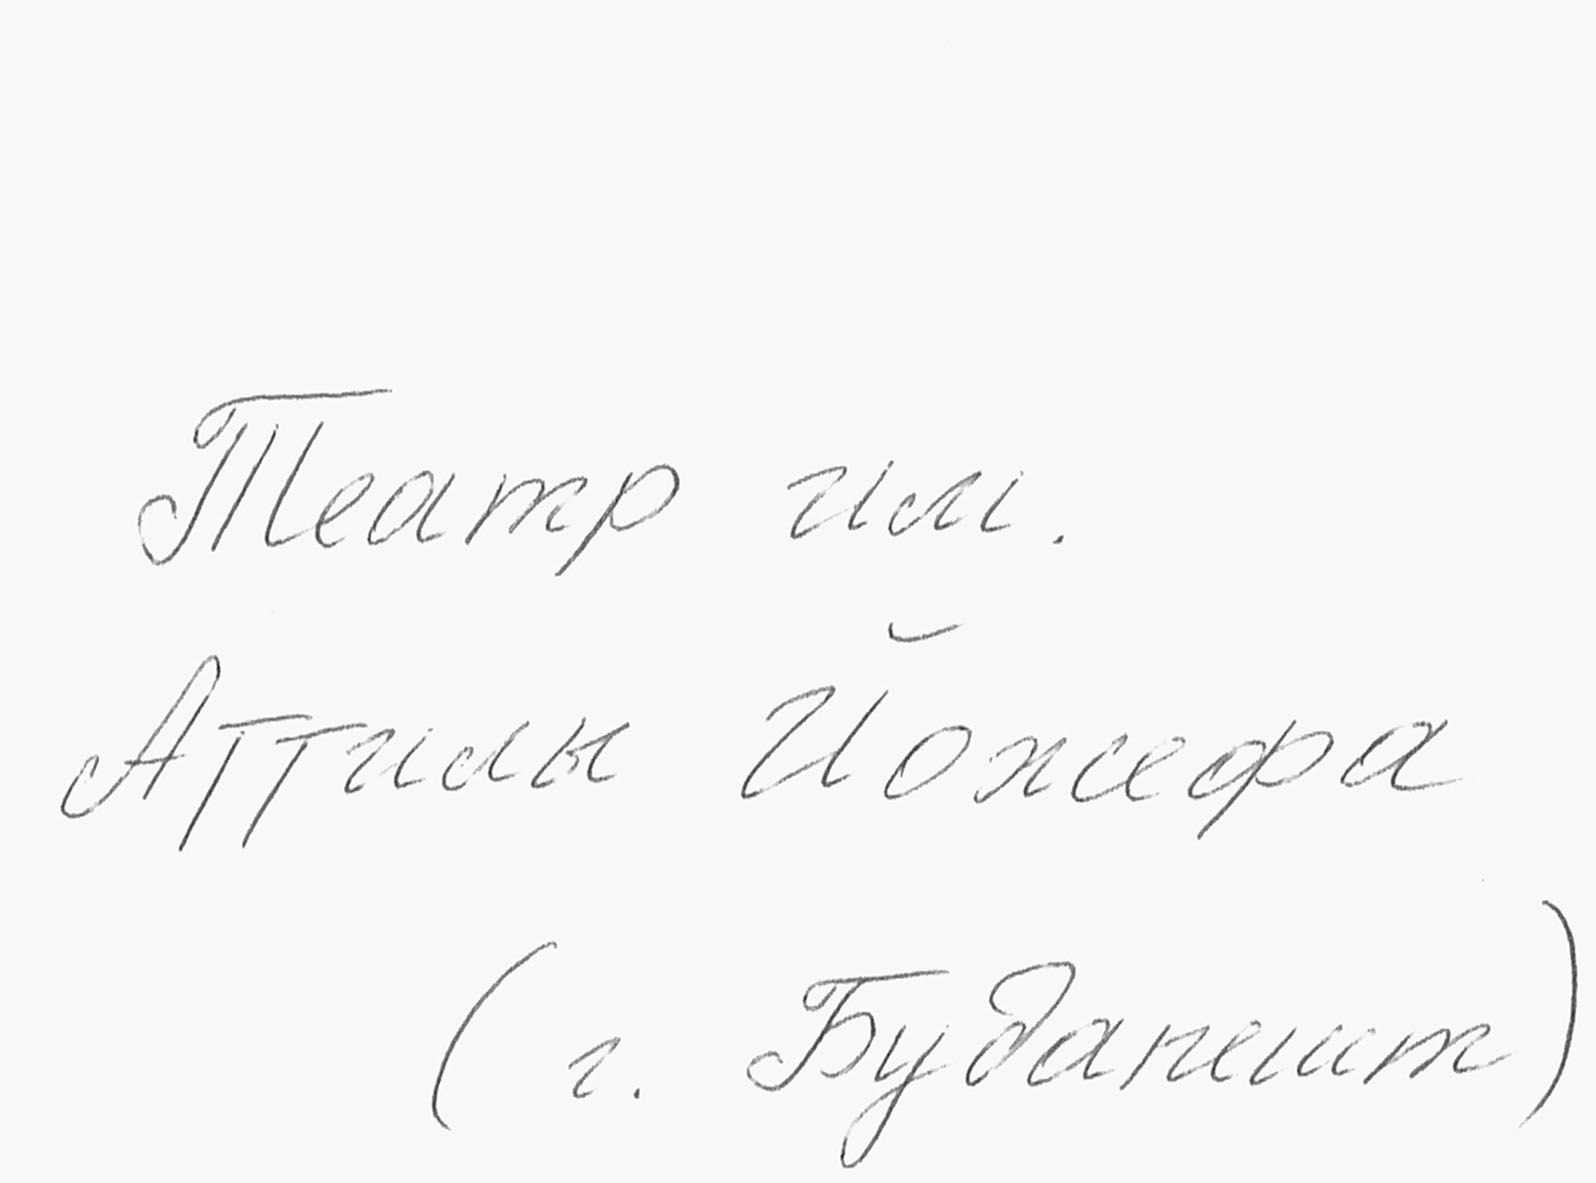 Театр им.
Аттилы Йожефа
(г. Будапешт)